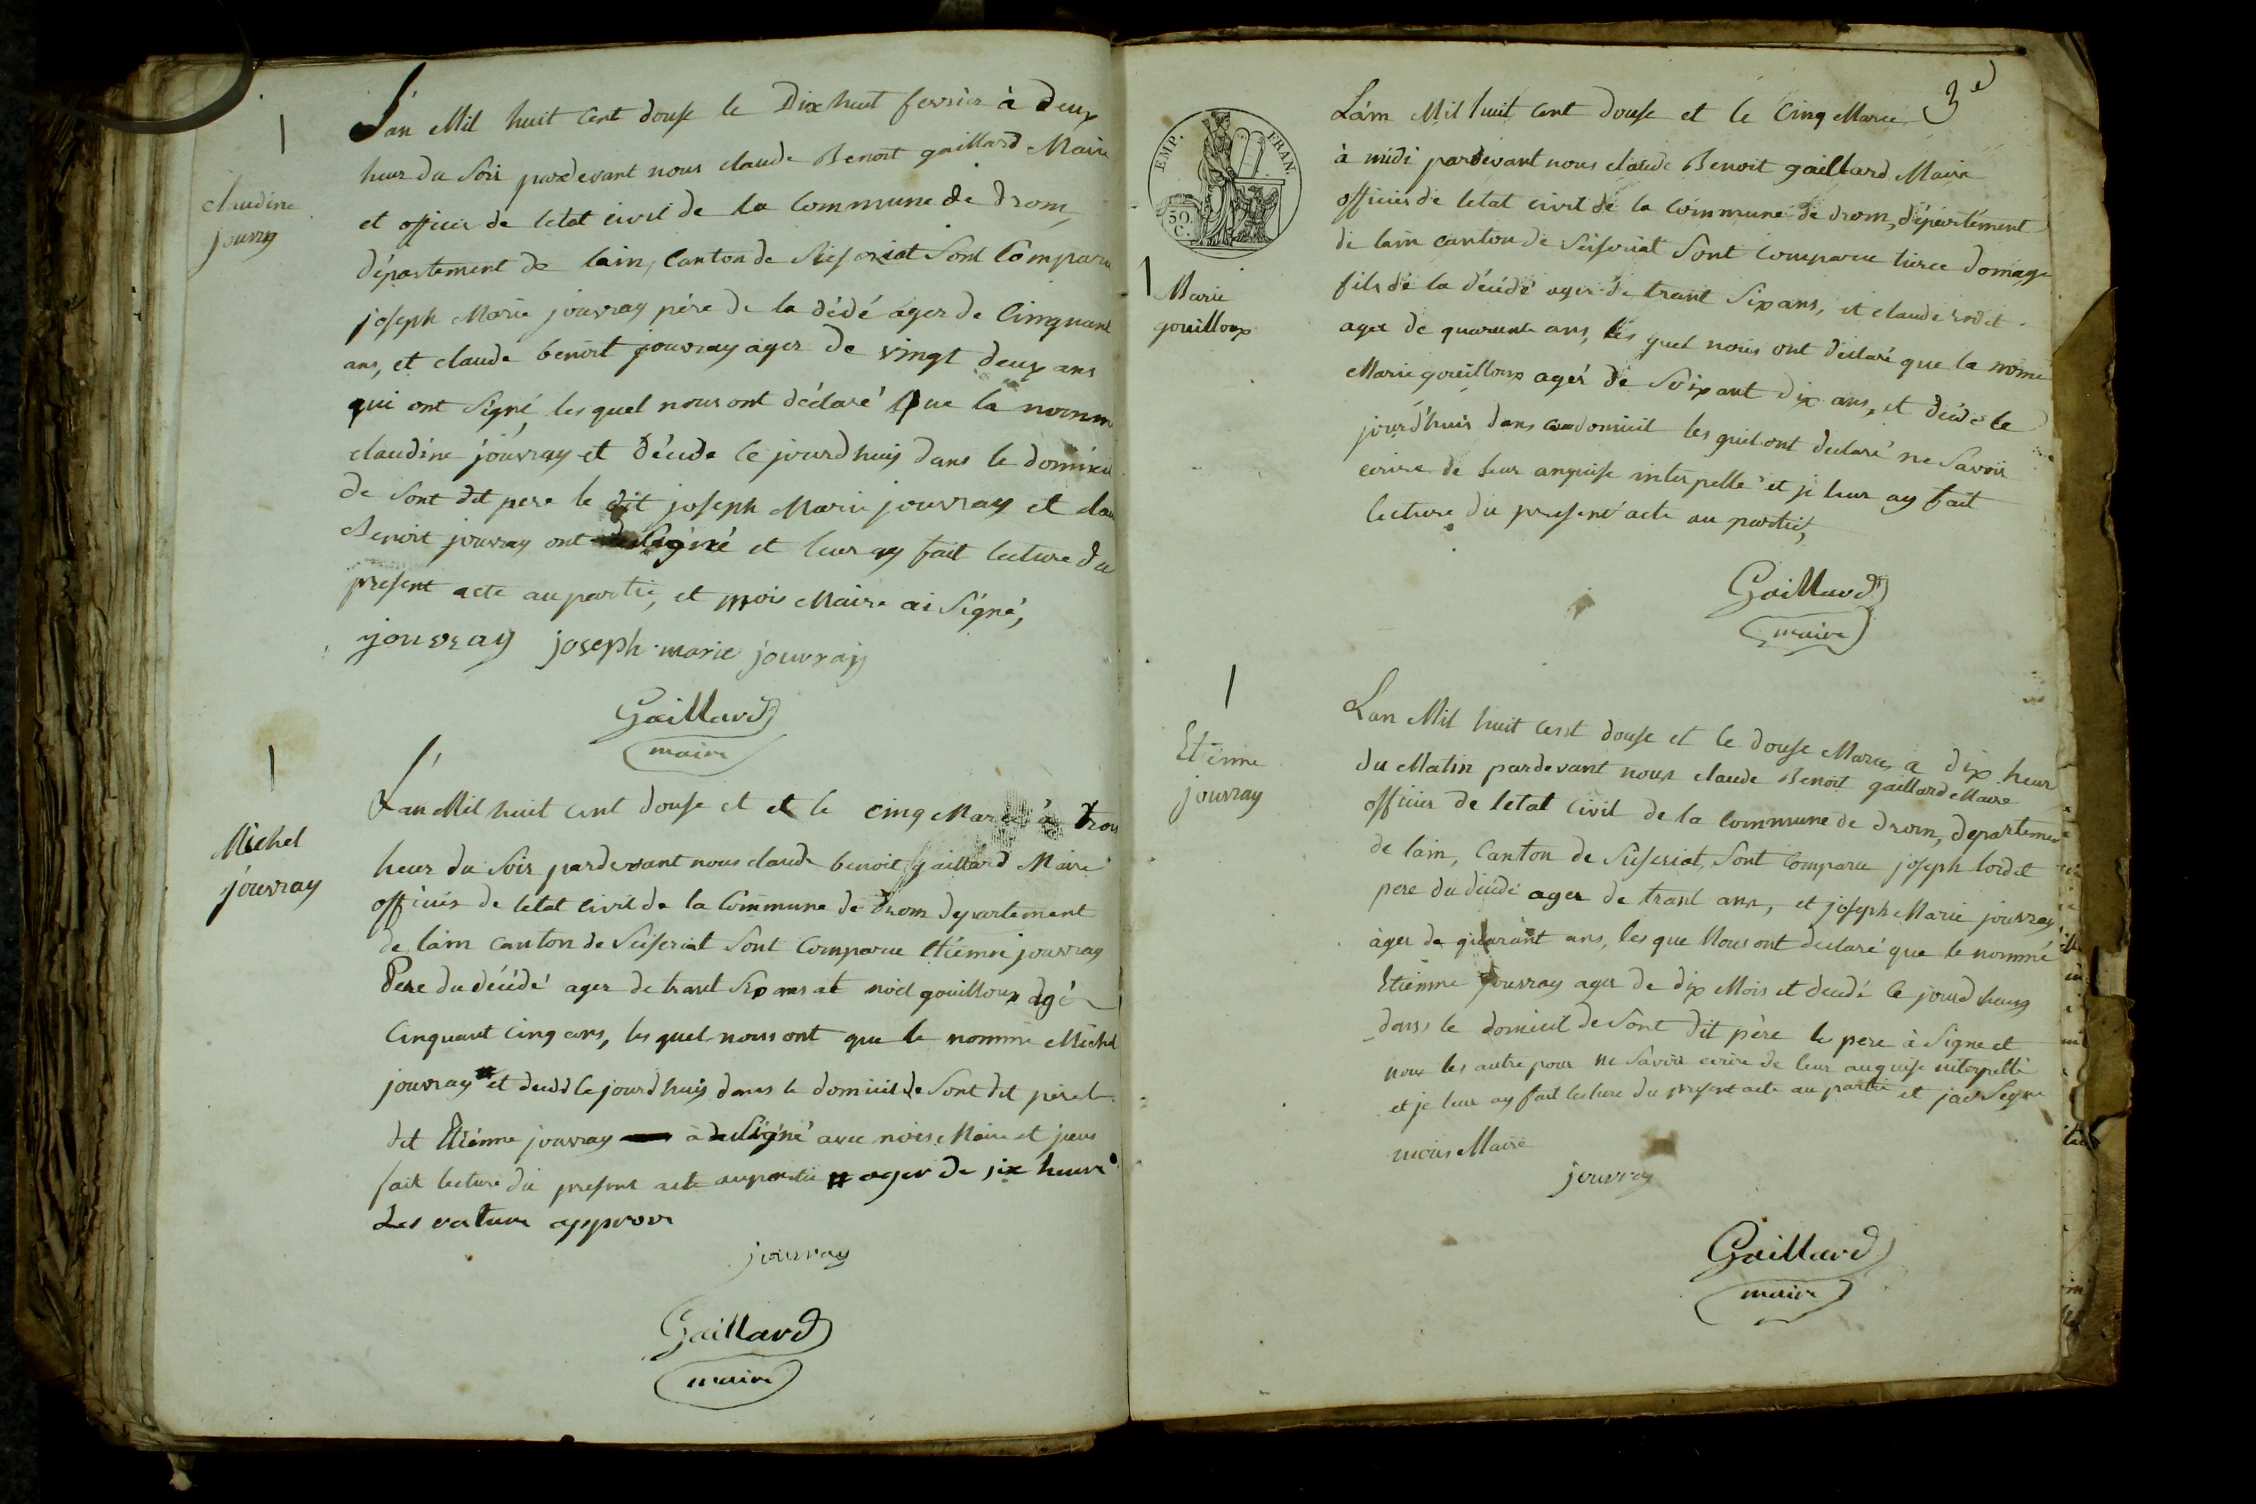 claudine
jouvray
L'an Mil huit Cent douse le Dix huit fevrier à deux
heur du Soir pardevant nous claude Benoit gaillard Maire
et officier de letat civil de la Commune de drom,
département de lain, Canton de Seiseriat Sont Comparu
joseph Marie jouvray pére de la dédé áger de Cinquant
ans, et claude benoit jouvray ager de vingt deux ans
qui ont Signé, les quel nous ont déclaré Que la nomm
claudine jouvray et décede ce jourdhuy dans le domicil
de Sont dit pere le dit joseph Marie jouvray et clau
Benoit jouvray ont Signé et leur ay fait lecture du
present acte au partie, et mois Maire ai Signé,
jouvray joseph marie jouvray
Gaillard
maire
Michel
jouvray
L'an Mil huit cent douse et et le cinq Mars à trois
heur du Soir pardevant nous claude benoit gaillard Maire
officier de letat civil de la Commune de drom departement
de lain canton de Seiseriat Sont Comparue Etiénne jouvray
Pere du décédé ager de trant Six ans et noël gouilloux agé
Cinquant cinq ans, les quel nous ont que le nommé Michel
jouvray # et decedé le jourdhuy dans le domicil de Sont dit père le
dit Etiénne jouvray à Signé avec nois Maire et jeus
fait lecture du present acte au partie # ager de six heure
Les rature approve
jouvray
Gaillard
maire
3e
EMP. FRAN.
50. C.
Marie
gouilloux
Láin Mil huit cent douse et le Cinq Marce
à midi pardevant nous claude Benoit gaillard Maire
officier de letat civil de la commune de drom, département
de lain canton de Seiseriat Sont Comparue domage
fils de la décédé ager de trant Six ans, et claude rodet
ager de quarante ans, les quel nous ont declaré que la nomé
Marie gouilloux agér de Soixant dix ans, et décédé le
jourd'huis dans domicil les quel ont declaré ne Savoir
ecrire de leur anquise interpellé et je leur ay fait
lecture du present acte au partie,
Gaillard
maire
Etiénne
jouvray
Lan Mil huit cent douse et le douse Marce à dix heur
du Matin pardevant nous claude Benoit gaillard Maire
officier de letat Civil de la Commune de drom, departement
de lain, Canton de Seiseriat, Sont Comparu joseph lordet
pere du décédé ager de trant ans, et joseph Marie jouvray
àger de quarànt ans, les que Nous ont declaré que le nommé
Etiénne jouvray ager de dix Mois et décédé le jourdheuy
dans le domicil de Sont dit père le pere à Signe et
nous les autre pour ne Savoir ecrire de leur anquise interpellé
et je leur ay fait lecture du present acte au partie et jai Signe
mois Maire
jouvray
Gaillard
maire